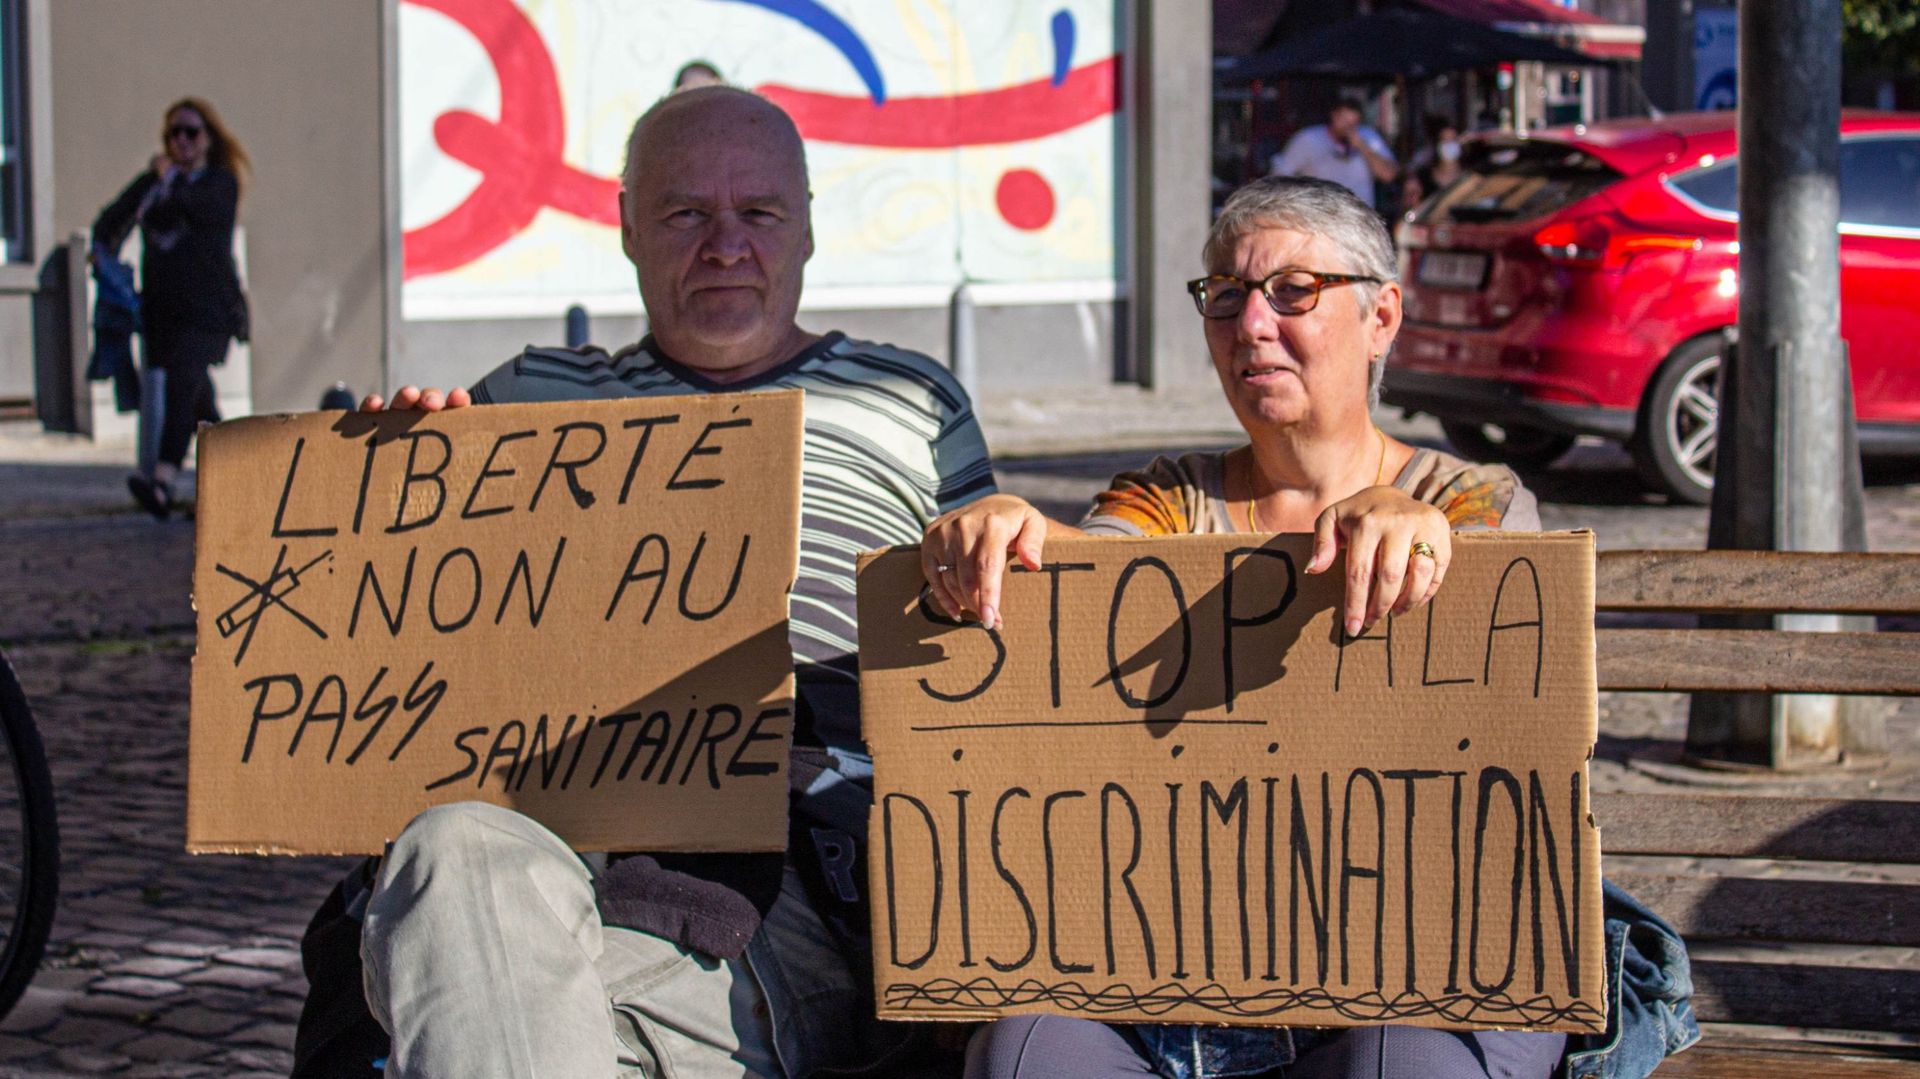 LiBERTÉ
NON AU
PASS
SANiTAiRE
STOP A LA
DiSCRiMiNATiON